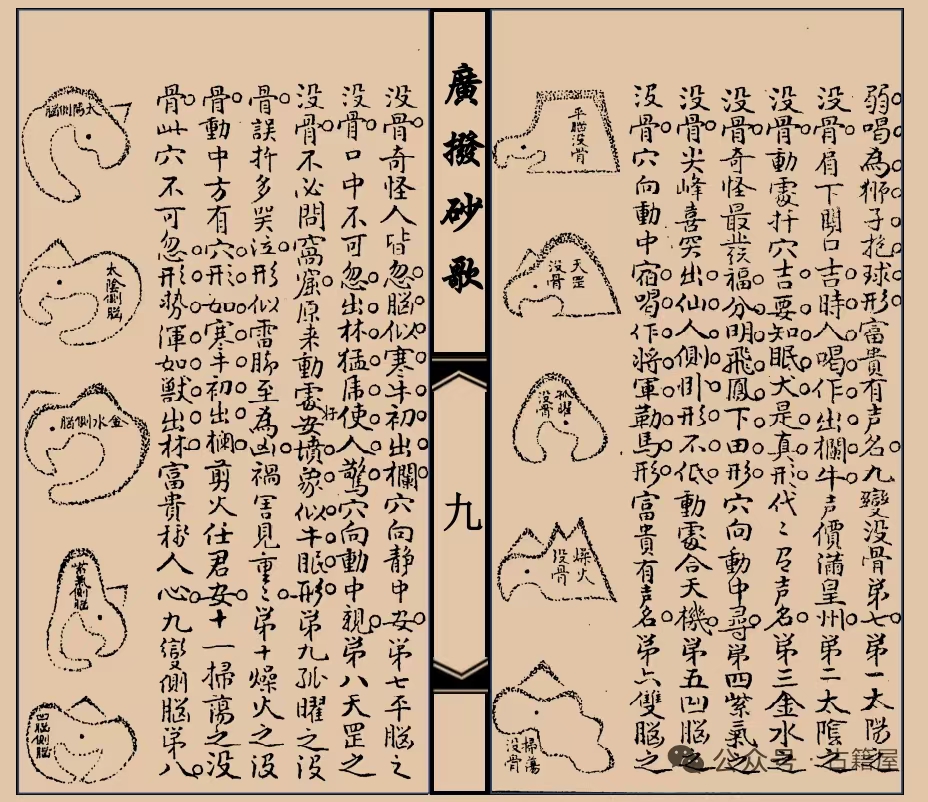 弱喝為獅子抱球形富貴有声名九變没骨第七第一太陽之
没骨眉下関口吉時人喝作出欄牛声價滿皇州第二太陰之
没骨動處扦穴吉要知眠犬是真形代〻召声名第三金水之
没骨奇怪最發福分明飛鳳下田形穴向動中尋第四紫氣之
没骨尖峰喜突出仙人側卧形不低動處合天機第五凹腦之
没骨穴向動中宿喝作将軍勒馬形富貴有声名第六雙腦之
平腦没骨
天罡没骨
孤曜没骨
燥火没骨
掃蕩没骨
廣撥砂歌
九
没骨奇怪人皆忽腦似寒牛初出欄穴向静中安第七平腦之
没骨口中不可忽出林猛虎使人驚穴向動中視第八天罡之
没骨不必問窩窟原来動處好安墳象似牛眠形第九孤曜之没
骨誤扦多哭泣形似雷腳至為凶禍害見重〻第十燥火之没
骨動中方有穴形如寒牛初出欄剪火任君安十一掃蕩之没
骨此穴不可忽形势渾如獸出林富貴稱人心九變側腦第八
太陽側腦
太陰側腦
金水側腦
紫氣側腦
凹腦側腦
公众号·古籍屋